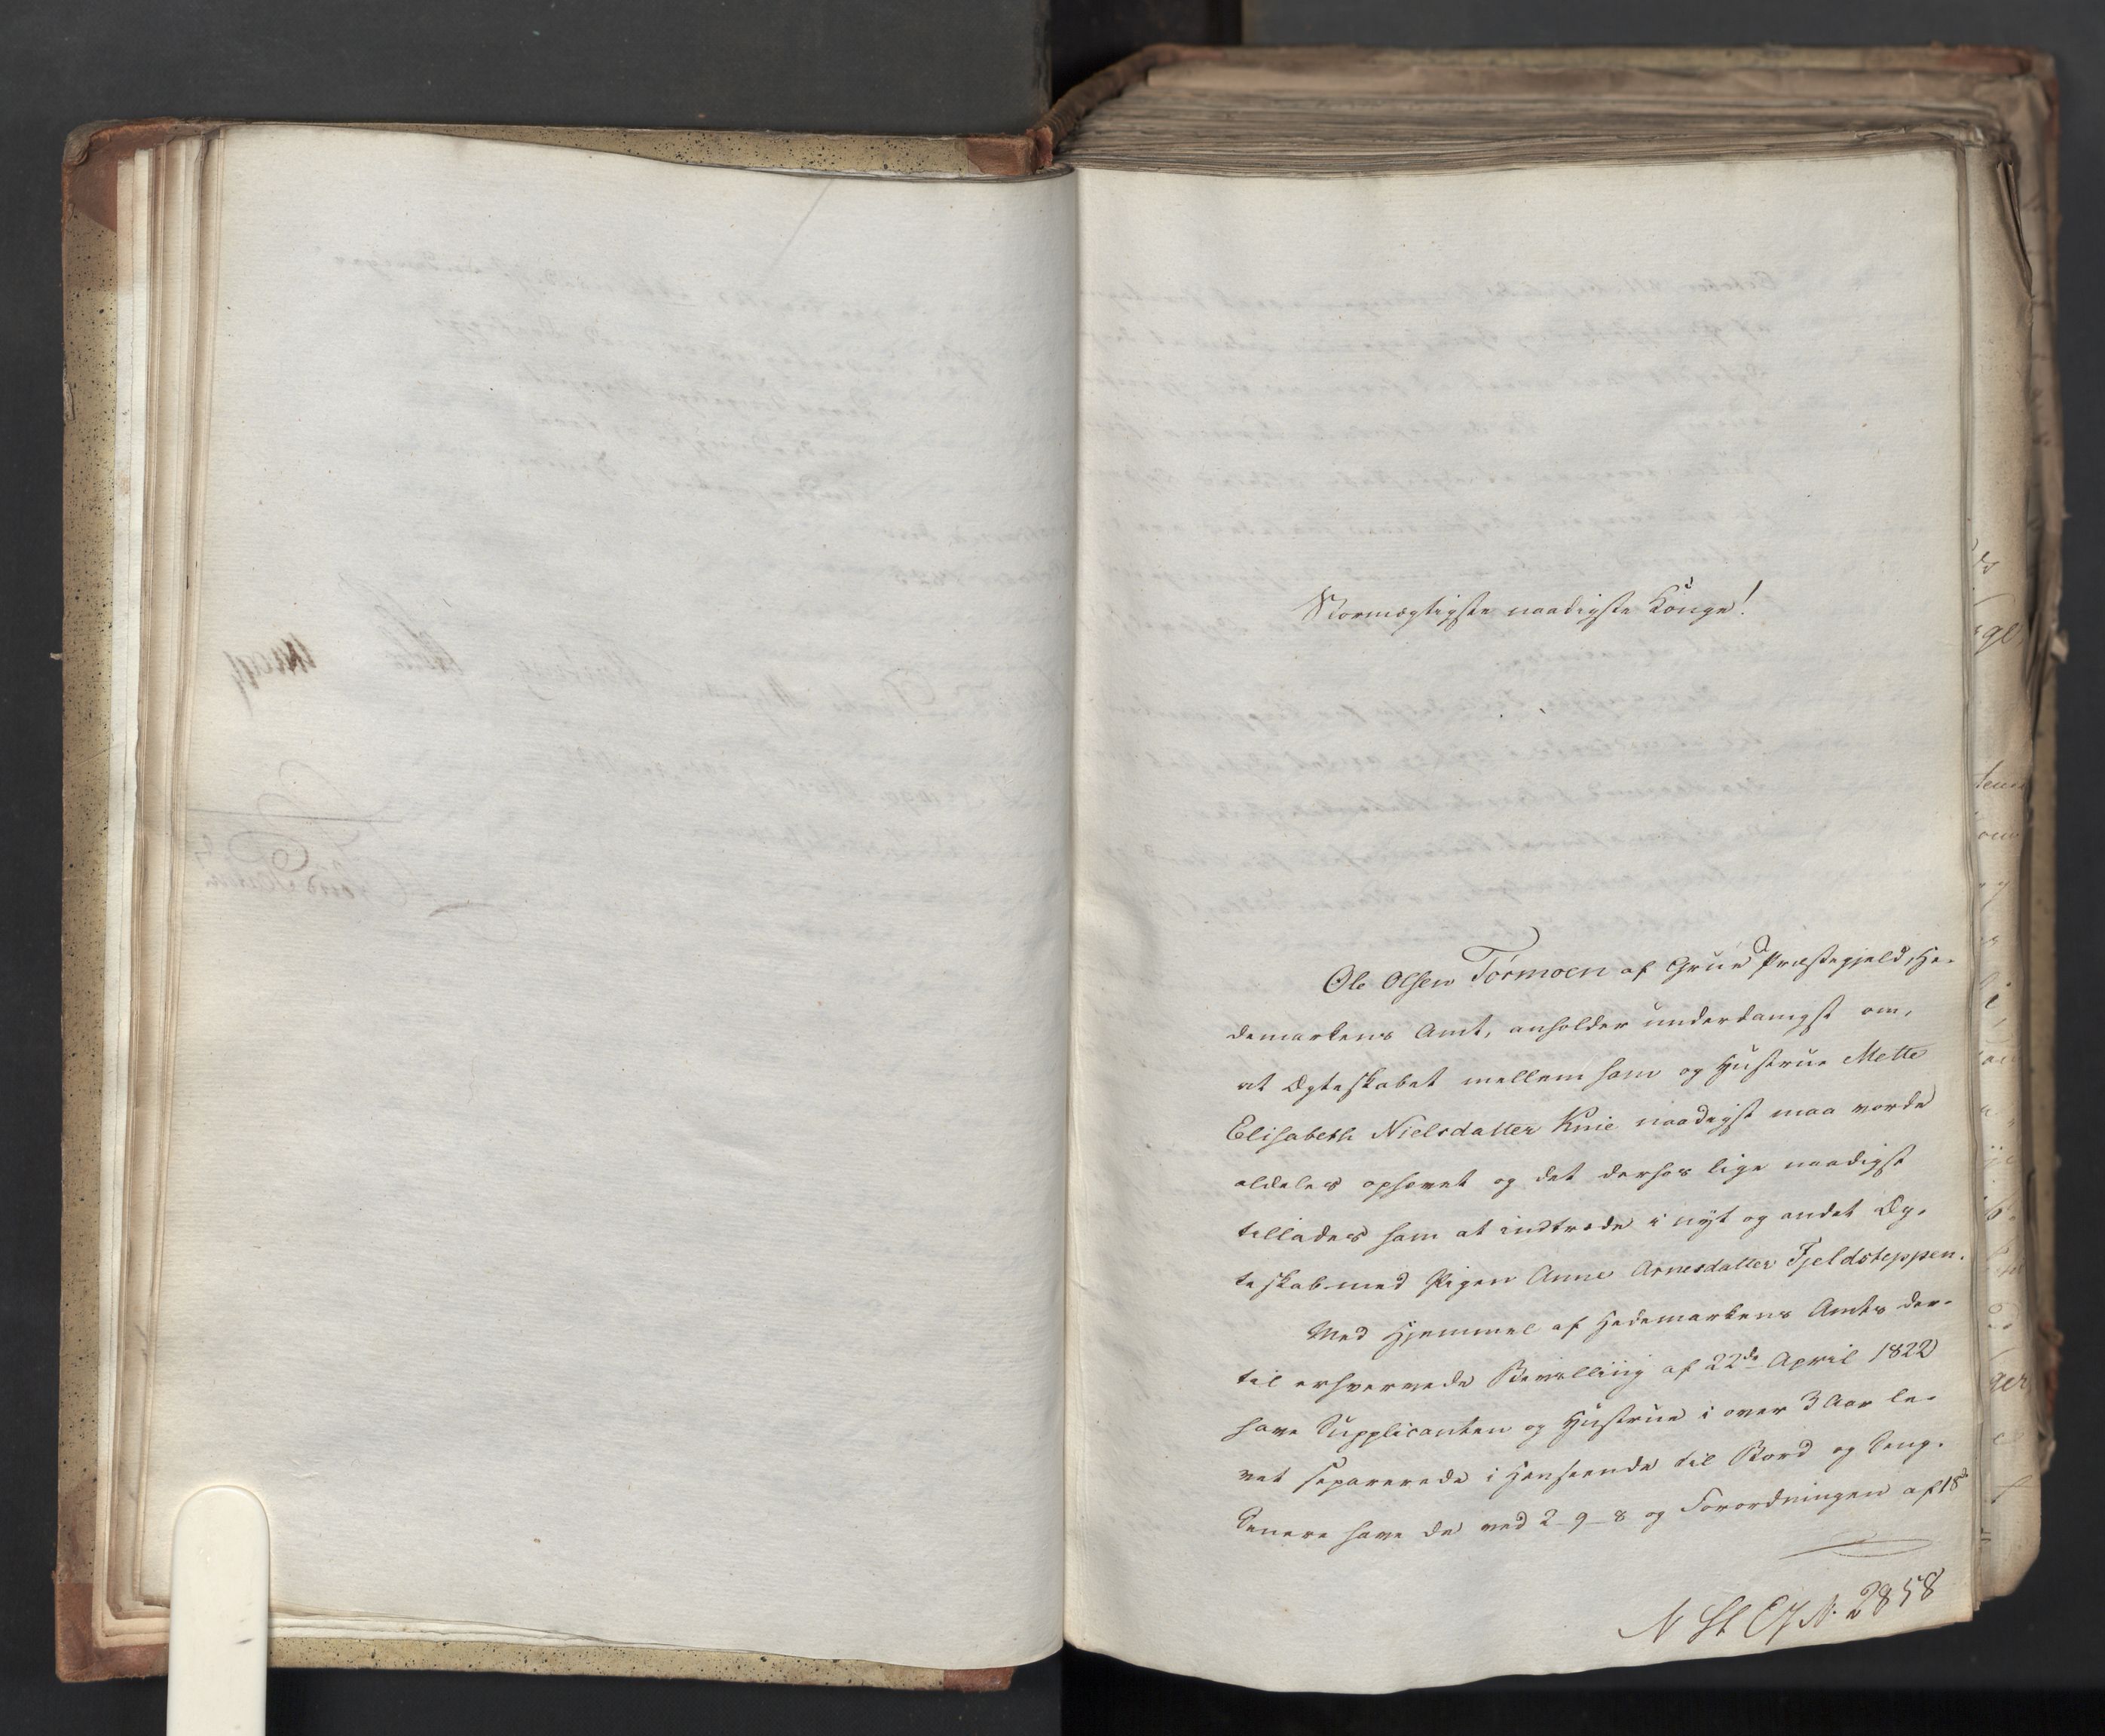 Stormægtigste naadigste Konge!
Ole Olsen Tørmoen af Grue Præstegjeld, He-
demarkens Amt, anholder underdanigst om,
at Ægteskabet mellem ham og Hustrue Mette
Elisabeth Nielsdatter Knie naadigst maa vorde
aldeles ophævet og det derhos lige naadigst
tillades ham at indtræde i nyt og andet Æg-
teskab med Pigen Anne Arnesdatter Fjeldsteppen.
Med Hjemmel af Hedemarkens Amts der-
til erhvervede Bevilling af 22de April 1822
have Supplicanten og Hustrue i over 3 Aar le-
vet separerede i Henseende til Bord og Seng.
Senere have de ved 2-9-8 og Forordningen af 18de
N St E N. 2858